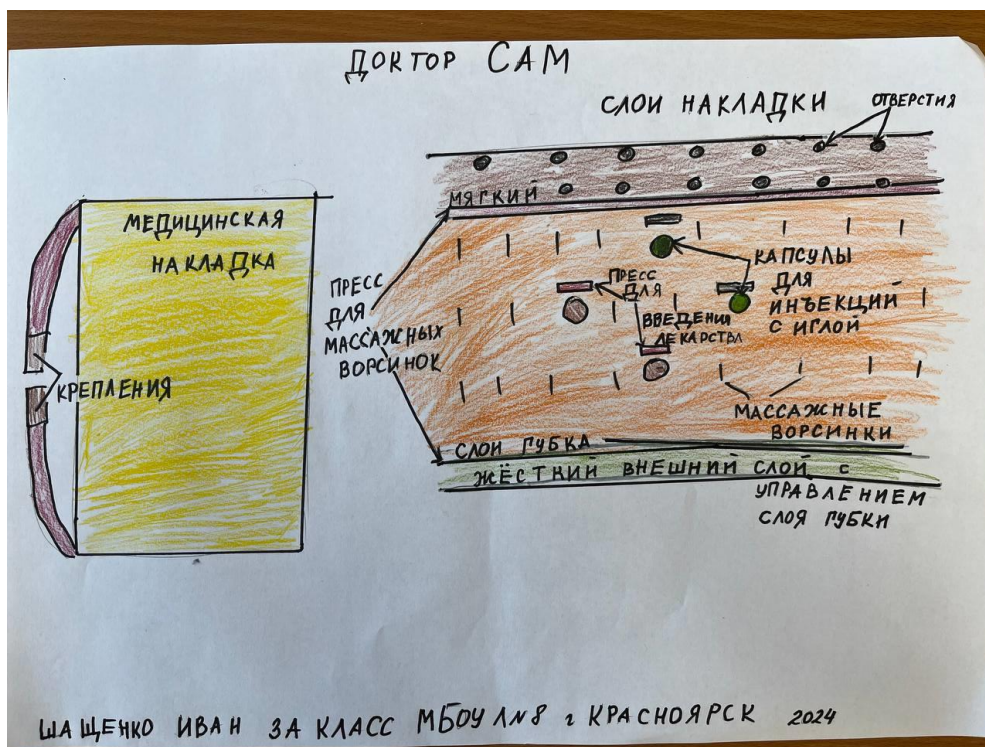 ДОКТОР САМ
СЛОИ НАКЛАДКИ
ОТВЕРСТИЯ
МЯГКИЙ
МЕДИЦИНСКАЯ
НАКЛАДКА
КРЕПЛЕНИЯ
ПРЕСС
ДЛЯ
МАССАЖНЫХ
ВОРСИНОК
ПРЕСС
ДЛЯ
ВВЕДЕНИЯ
ЛЕКАРСТВА
КАПСУЛЫ
ДЛЯ
ИНЪЕКЦИЙ
С ИГЛОЙ
МАССАЖНЫЕ
ВОРСИНКИ
СЛОИ ГУБКА
ЖЁСТКИЙ ВНЕШНИЙ СЛОЙ С
УПРАВЛЕНИЕМ
СЛОЯ ГУБКИ
ШАЩЕНКО ИВАН 3А КЛАСС МБОУ Л№8 г КРАСНОЯРСК 2024